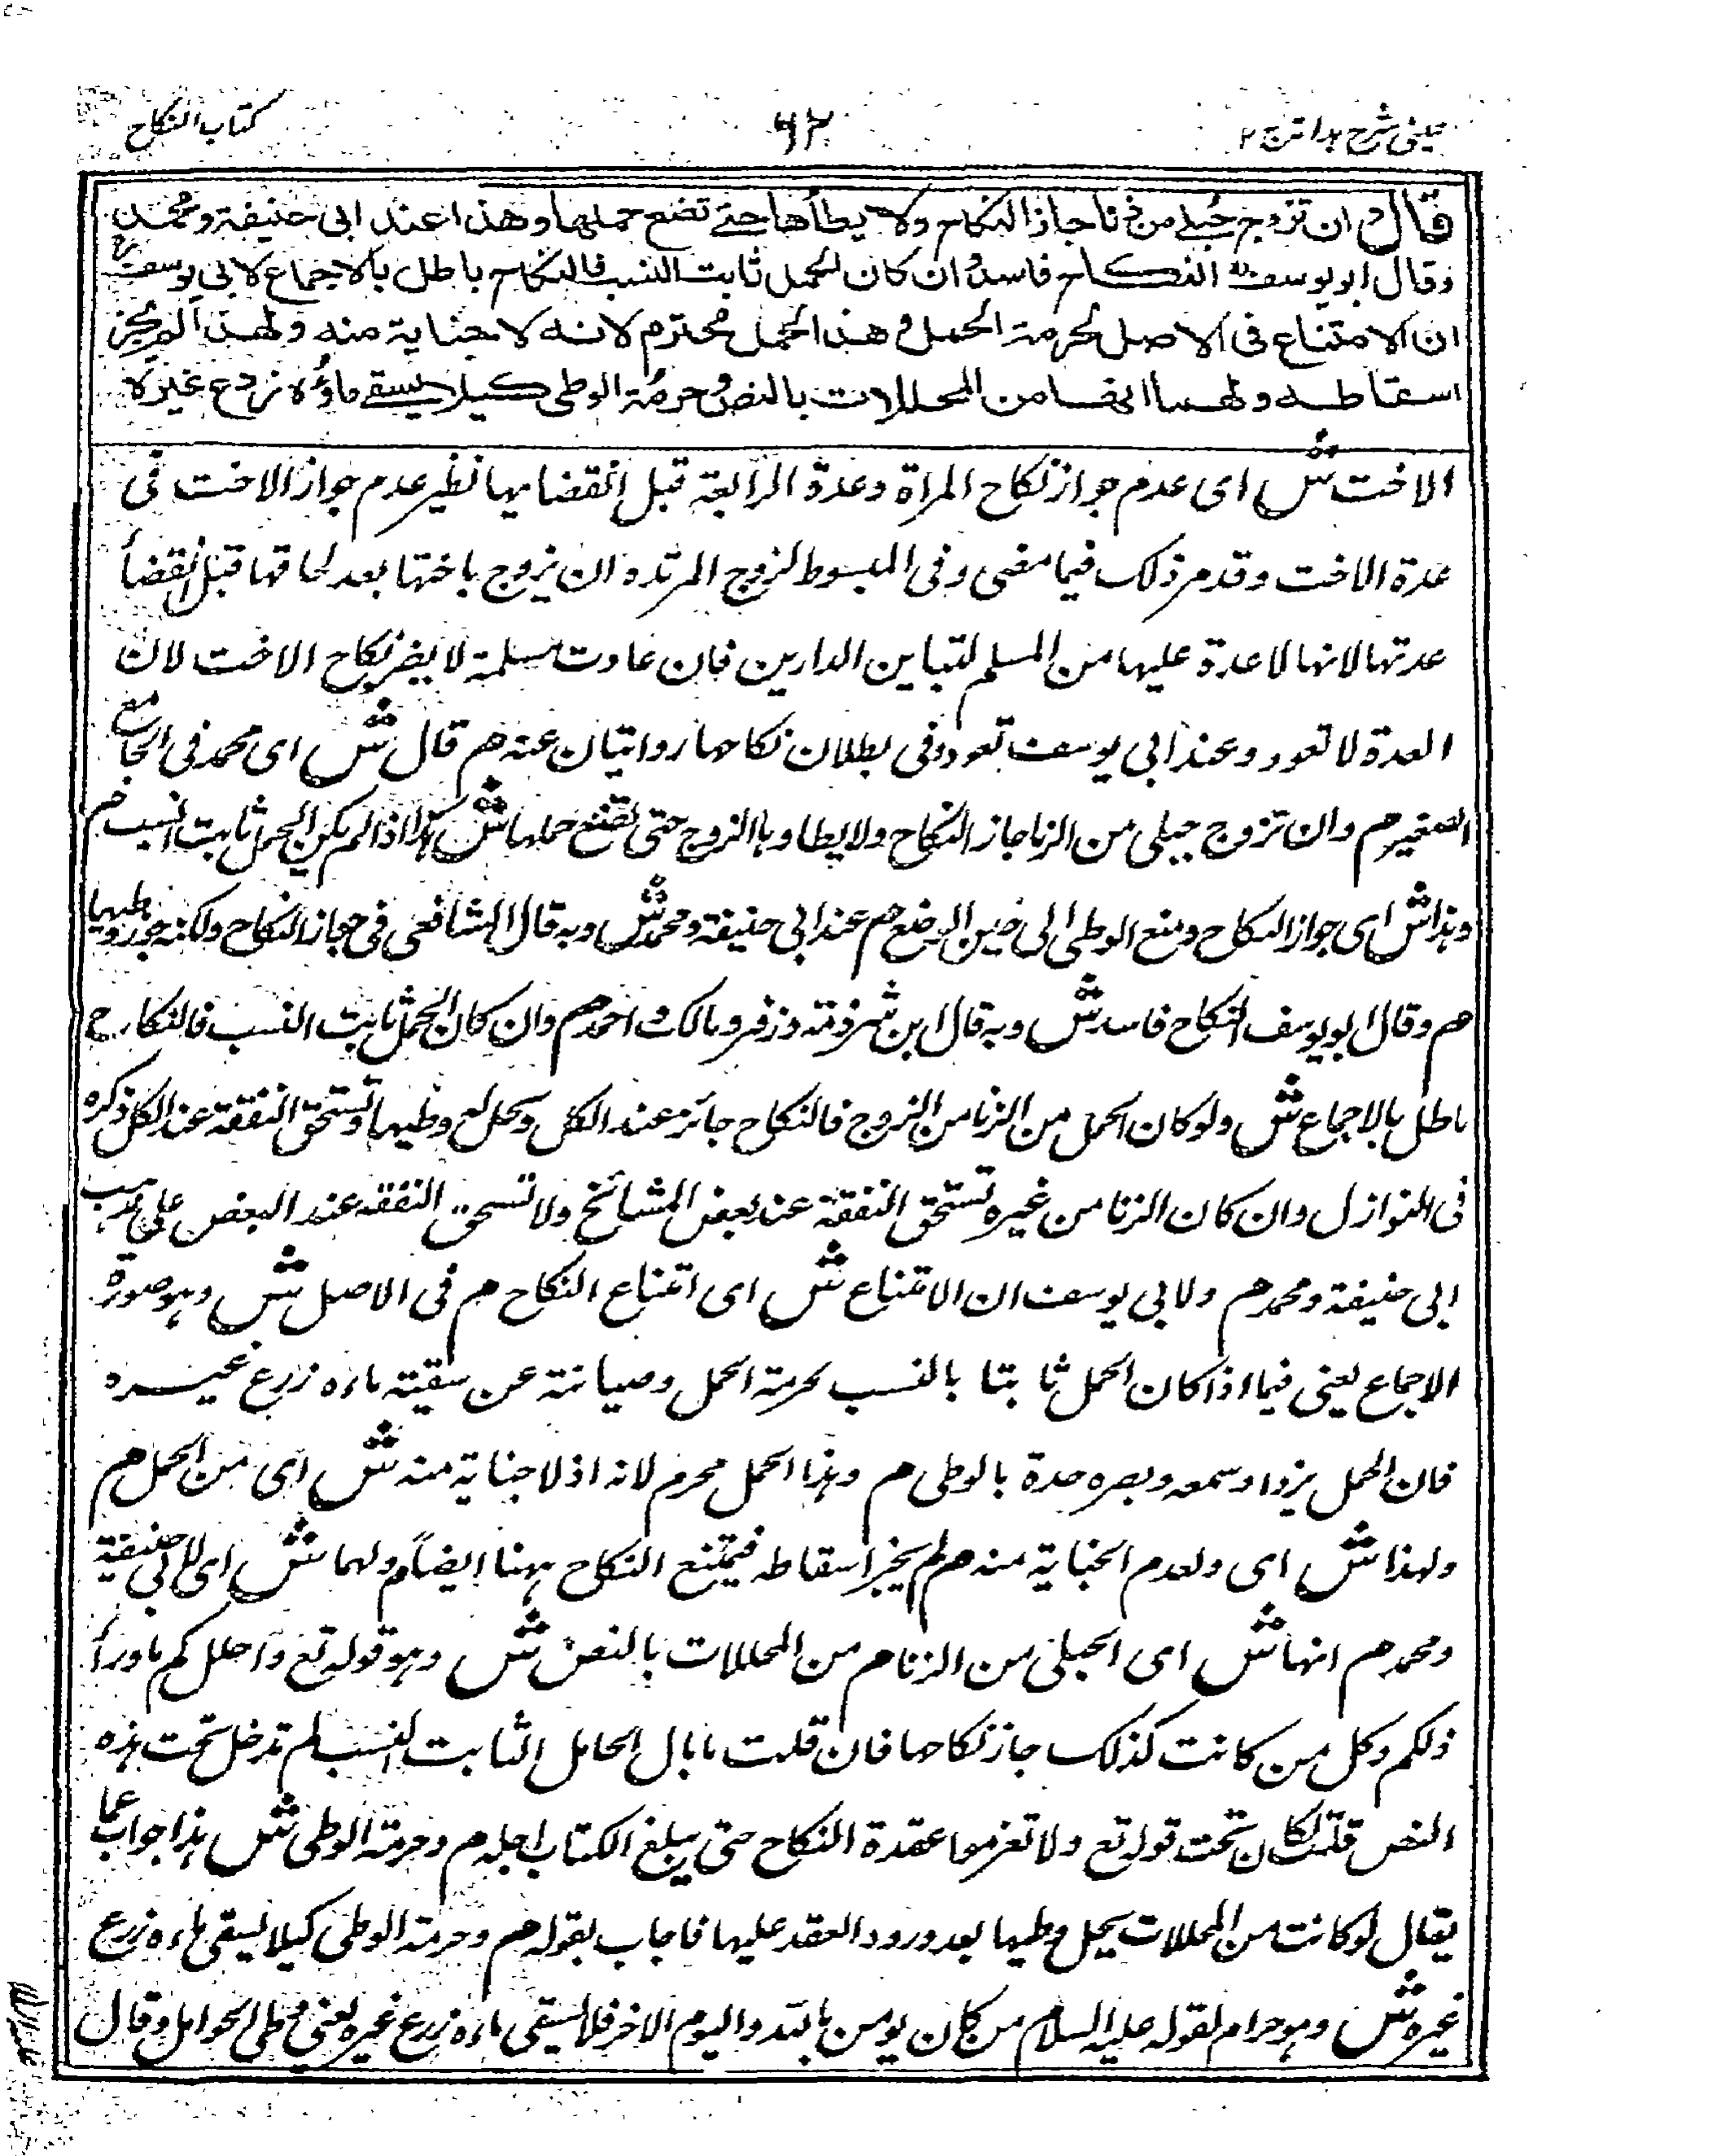 عینی شرح ہدایہ ج ۲
۶۲
کتاب النکاح
قال وان تزوج حبلى من زنا جاز النكاح ولا يطأها حتى تضع حملها وهذا عند ابى حنيفة ومحمد
وقال ابو يوسف النكاح فاسد وان كان الحمل ثابت النسب فالنكاح باطل بالاجماع لابى يوسف
ان الامتناع فى الاصل لحرمة الحمل وهذا الحمل محترم لانه لا جناية منه ولهذا لم يجز
اسقاطه ولهما انها من المحللات بالنص وحرمة الوطى كيلا يسقے ماؤه زرع غيره
الاخت ش اى عدم جواز نكاح المراة وعدة الرابعة قبل انقضايها نظير عدم جواز الاخت فى
عدة الاخت وقد مر ذلك فيما مضى وفى المبسوط لزوج المرتده ان يزوج باختها بعد لحاقها قبل انقضأ
عدتها لانها لا عدة عليها من المسلم لتباين الدارين فان عادت مسلمة لا يضر نكاح الاخت لان
العدة لا تعود وعند ابى يوسف تعود وفى بطلان نكاحها روايتان عنه م قال ش اى محمد فى الجامع
الصغير م وان تزوج حبلى من الزنا جاز النكاح ولا يطاوها الزوج حتى تضع حملها ش هذا اذا لم يكن الحمل ثابت النسب م
وہذا ش اى جواز النكاح ومنع الوطى الى حين الوضع م عند ابى حنيفة ومحمد ش وبه قال الشافعى فى جواز النكاح ولكنه جوز وطيها
م وقال ابو يوسف النكاح فاسد ش وبه قال ابن شبرمة وزفر ومالك واحمد م وان كان الحمل ثابت النسب فالنكاح
باطل بالاجماع ش ولو كان الحمل من الزنا من الزوج فالنكاح جائز عند الكل ويحل له وطيها وتستحق النفقة عند الكل ذكره
فى النوازل وان كان الزنا من غيره تستحق النفقة عند بعض المشائخ ولا تستحق النفقه عند البعض على مذهب
ابى حنيفة ومحمد م ولابى يوسف ان الامتناع ش اى امتناع النكاح م فى الاصل ش وہو صورة
الاجماع يعنى فيما اذا كان الحمل ثابتا بالنسب لحرمة الحمل وصيانة عن سقيته ماءه زرع غيره
فان الحمل يزداد سمعه وبصره حدة بالوطى م وہذا الحمل محرم لانه اذ لا جناية منه ش اى من الحمل م
ولهذا ش اى ولعدم الجناية منه م لم يجز اسقاطه فيمتنع النكاح ہهنا ايضاً م ولهما ش اى لابى حنيفة
ومحمد م انها ش اى الحبلى من الزنا م من المحللات بالنص ش وہو قوله تع واحل لكم ما ورأ
ذلكم وكل من كانت كذلك جاز نكاحها فان قلت ما بال الحامل الثابت النسب لم تدخل تحت ہذه
النص قلت لكان تحت قوله تع ولا تعزموا عقدة النكاح حتى يبلغ الكتاب اجله م وحرمة الوطى ش ہذا جواب عما
يقال لو كانت من المحللات يحل وطيها بعد ورود العقد عليها فاجاب بقوله م وحرمة الوطى كيلا يسقى ماءه زرع
غيره ش وہو حرام لقوله عليه السلام من كان يومن بالله واليوم الاخر فلا يسقى ماءه زرع غيره يعنى وطى الحوامل وقال